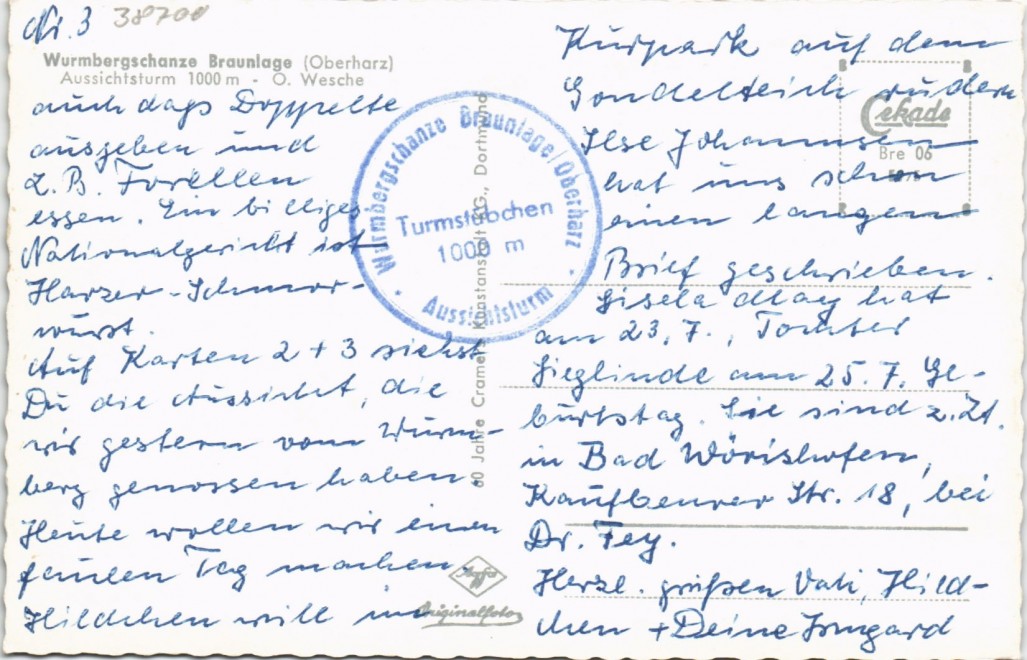 Nr. 3 38700
Wurmbergschanze Braunlage (Oberharz)
Aussichtsturm 1000 m - O. Wesche
auch das Doppelte
ausgeben und
z.B. Forellen
essen. Ein billiges
Nationalgericht ist
Harzer-Schmor-
wurst.
Auf Karten 2 + 3 siehst
Du die Aussicht, die
wir gestern vom Wurm-
berg genossen haben.
Heute wollen wir einen
faulen Tag machen.
Hildchen will im
Kurpark auf dem
Gondelteich rudern
Ilse Johannsen
hat uns schon
einen langen
Brief geschrieben.
Gisela May hat
am 23.7., Tochter
Sieglinde am 25.7. Ge-
burtstag. Sie sind z.Zt.
in Bad Wörishofen,
Kaufbeurer Str. 18, bei
Dr. Fey.
Herzl. grüßen Vati, Hild-
chen + Deine Irmgard
Wurmbergschanze Braunlage/Oberharz
Turmstübchen
1000 m
Aussichtsturm
60 Jahre Cramers Kunstanstalt KG., Dortmund
Cekade
Bre 06
Agfa
Originalfoto